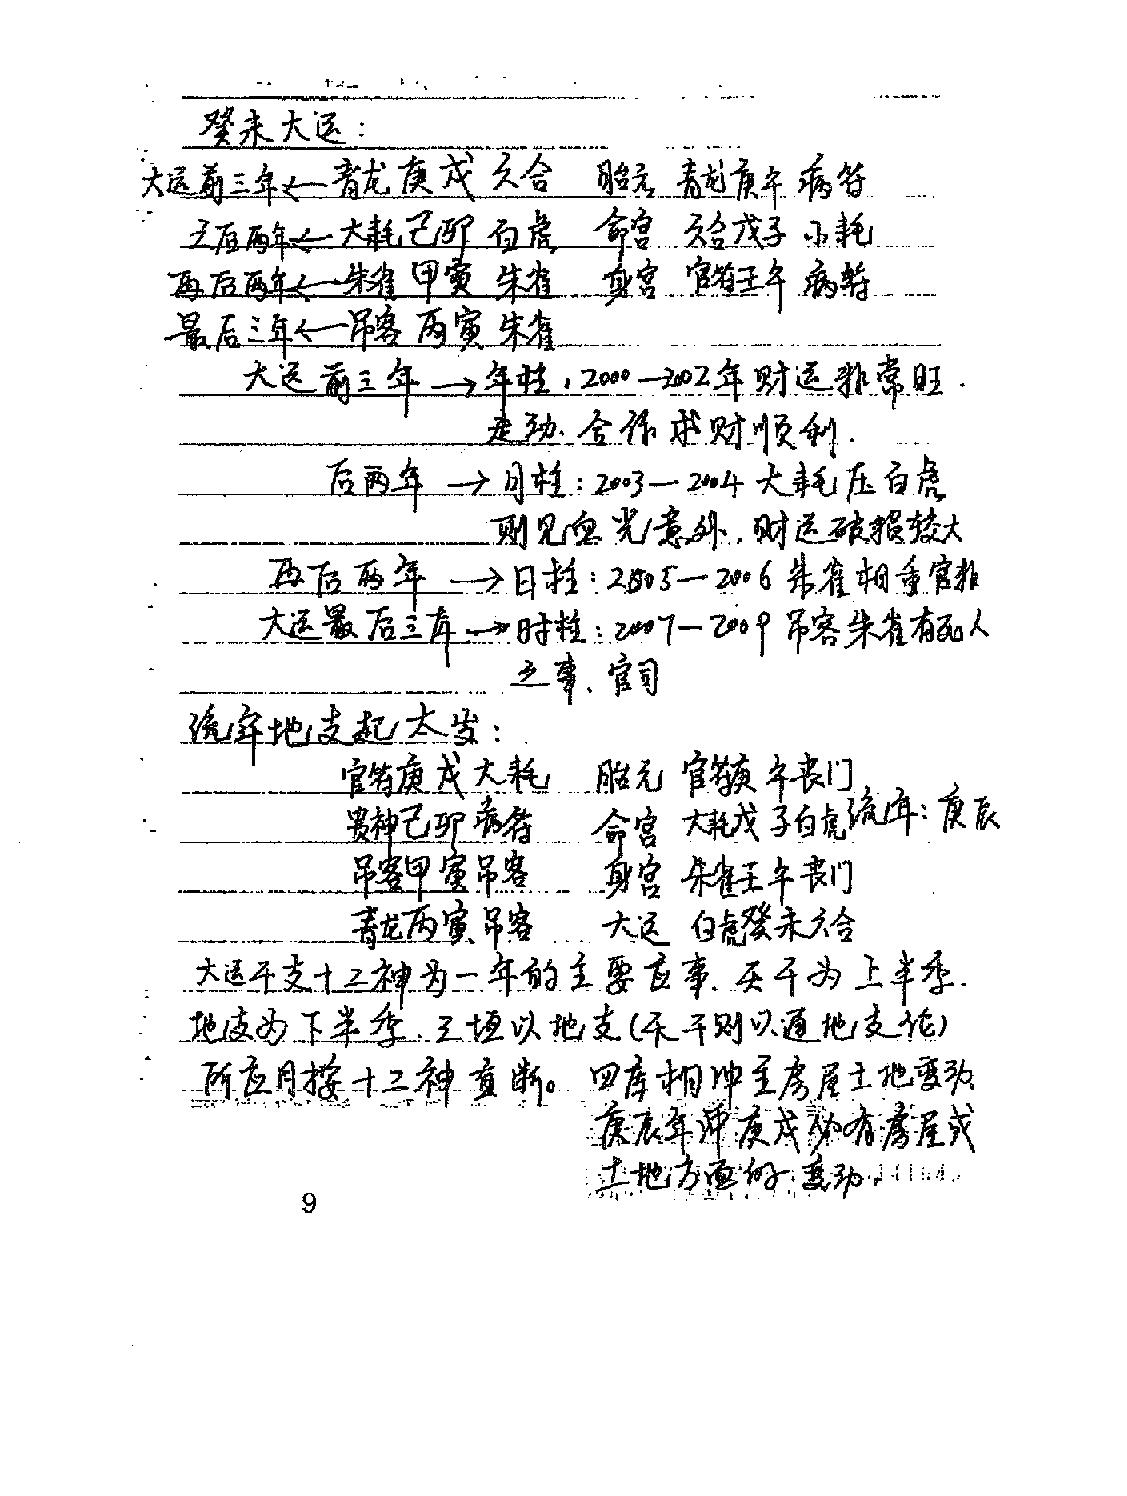 癸未大运：
大运前三年←青龙庚戌六合 胎元 青龙庚午病符
之后两年←大耗己卯白虎 命宫 六合戊子小耗
再后两年←朱雀甲寅朱雀 身宫 官符壬午病符
最后三年←吊客丙寅朱雀
大运前三年→年柱，2000—2002年财运非常旺．
走动、合作求财顺利．
后两年→月柱：2003—2004大耗压白虎
则见血光意外，财运破损较大
再后两年→日柱：2005—2006朱雀相重官非
大运最后三年→时柱：2007—2009吊客朱雀有死人
之事、官司
流年地支起太岁：
官符庚戌大耗 胎元 官符庚午丧门
贵神己卯病符 命宫 大耗戊子白虎 流年：庚辰
吊客甲寅吊客 身宫 朱雀壬午丧门
青龙丙寅吊客 大运 白虎癸未六合
大运干支十二神为一年的主要应事．天干为上半季．
地支为下半季．三垣以地支（天干则以通地支论）
所应月按十二神直断。 四库相冲主房屋土地变动
庚辰年冲庚戌必有房屋或
土地方面的变动．
9